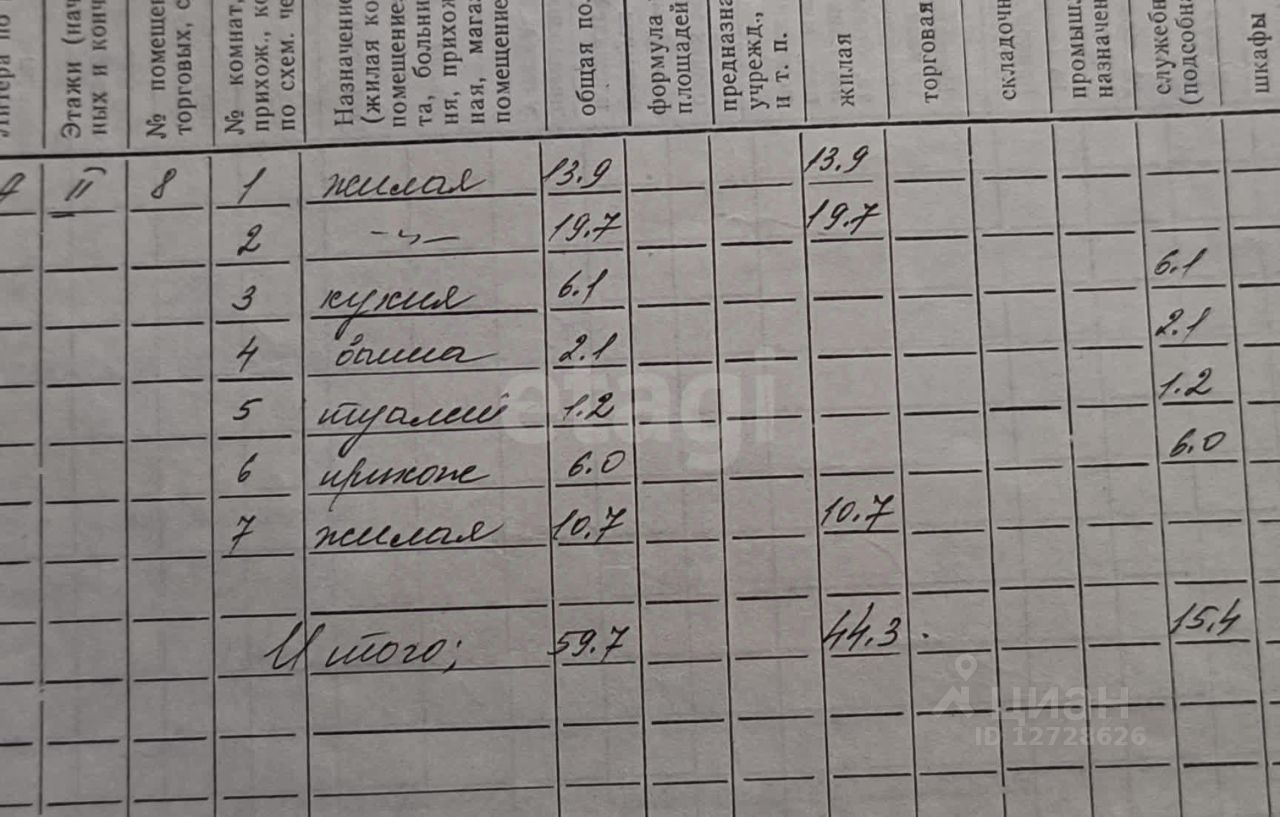 Литера по п
Этажи (нач
ных и конч
№ помещен
торговых, с
№ комнат,
прихож., ко
по схем. че
Назначение
(жилая ко
помещение.
та, больни
ня, прихож
ная, магаз
помещение
общая пл.
формула
площадей
предназна
учрежд.,
и т. п.
жилая
торговая
складочн
промышл.
назначен
служебн
(подсобна
шкафы
II 8 1 жилая 13.9 13.9
2 -„- 19.7 19.7
3 кухня 6.1 6.1
4 ванна 2.1 2.1
5 туалет 1.2 1.2
6 прихож 6.0 6.0
7 жилая 10.7 10.7
Итого; 59.7 44.3. 15.4
etagi
циан
ID 12728626